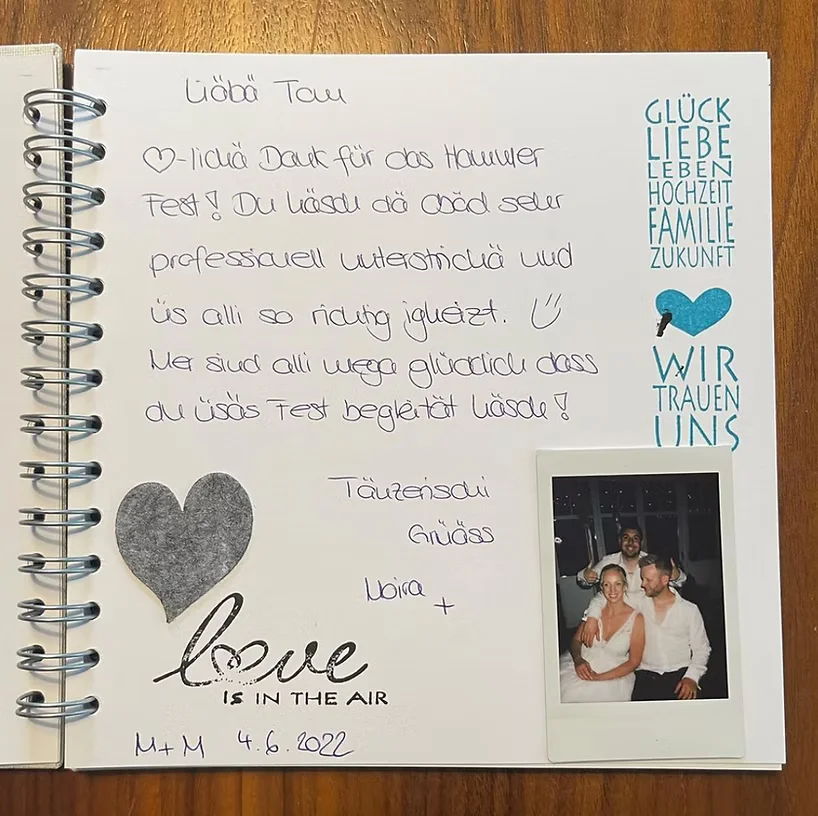 Liöbä Tom
♡-lichä Dank für das Hammer
Fest! Du häsch dä abäd sehr
professionell unterstrichä und
üs alli so richtig igheizt.
Mer sind alli mega glücklich dass
du üsäs Fest begleität häsch!
Tänzerischi
Grüäss
Moira
+
love
IS IN THE AIR
M+M 4.6.2022
GLÜCK
LIEBE
LEBEN
HOCHZEIT
FAMILIE
ZUKUNFT
WIR
TRAUEN
UNS